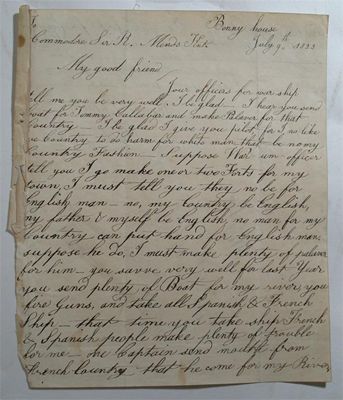 Bonny house
July 9th 1823
To
Commodore Sir R. Mends Knt.
My good friend
Your officers for war ship
tell me you be very well, I be glad — I hear you send
boat for Tommy Callabar and make Palaver for that
Country — I be glad I give you pilot, for I no like
we Country to do harm for white man that be no my
Country Fashion — Suppose War um officer
tell you I go make one or two Forts for my
town, I must tell you they no be for
English man — no, my Country be English,
my father & myself be English, no man for my
Country can put hand for English man,
suppose he do, I must make plenty of palaver
for him — you savve very well for last Year
you send plenty of Boat for my river, you
fire Guns, and take all Spanish & French
Ship — that time you take ship, French
& Spanish people make plenty of trouble
for me — one Captain send mouth from
French Country that he come for my River